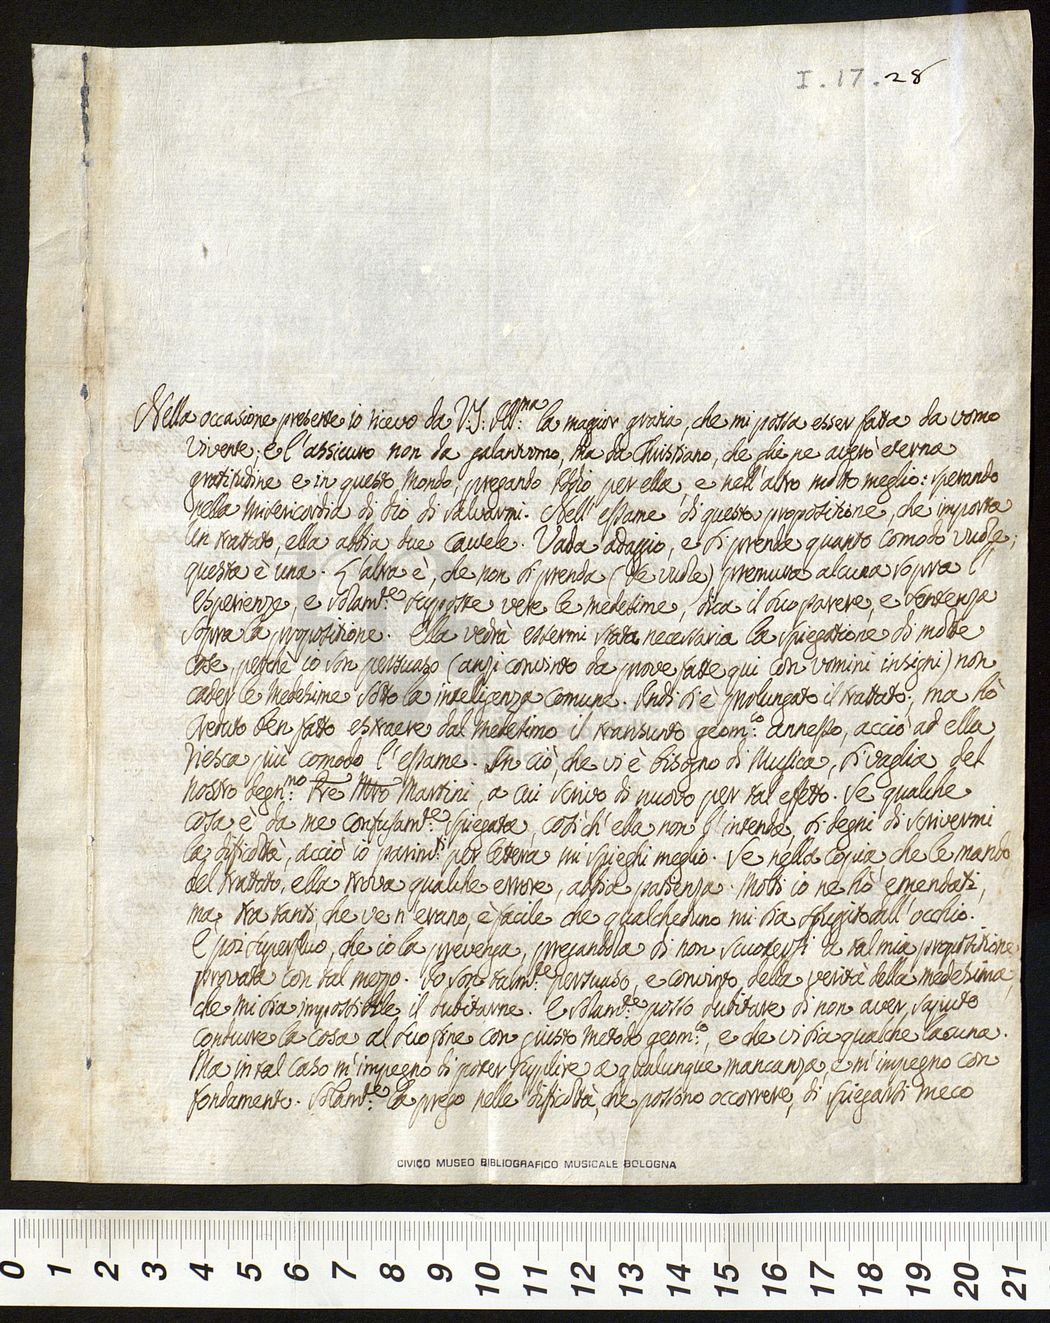 I.17.28
Nella occasione presente io ricevo da V.S: Ill:ma la magior grazia, che mi possa esser fatta da uomo
vivente: e l'assicuro non da galantuomo, ma da Christiano, che gliene averò eterna
gratitudine e in questo Mondo, pregando Iddio per ella, e nell'altro molto meglio: sperando
nella Misericordia di Dio di salvarmi. Nell'essame di questa proposizione, che importa
un trattato, ella abbia due cautele. Vada adaggio, e si prenda quanto comodo vuole;
questa è una. L'altra è, che non si prenda (se vuole) premura alcuna sopra l'
esperienze, e solam:te supposte vere le medesime, dica il suo parere, e sentenza
sopra la proposizione. Ella vedrà essermi stata necessaria la spiegazione di molte
cose, perchè io son persuaso (anzi convinto da prove fatte qui con uomini insigni) non
cader le medesime sotto la inteligenza comune. Indi si è prolungato il trattato; ma hò
creduto ben fatto estraere dal medesimo il transunto geom:co annesso, acciò ad ella
riesca più comodo l'essame. In ciò, che vi è bisogno di Musica, si vaglia del
nostro degn:mo Pre Mro Martini, a cui scrivo di nuovo per tal effetto. Se qualche
cosa è da me confusam:te spiegata, cosìch'ella non l'intenda, si degni di scrivermi
la difficoltà, acciò io parim:ti per lettera mi spieghi meglio. Se nella copia che le mando
del trattato, ella trova qualche errore, abbia pazienza. Molti io ne hò emendati,
ma tra tanti, che ve n'erano, è facile che qualcheduno mi sia sfuggito dall'occhio.
E poi superfluo, che io la prevenga, pregandola di non scuotersi a tal mia proposizione
provata con tal mezzo. Io son talm:te persuaso, e convinto della verità della medesima,
che mi sia impossibile il dubitarne. E solam:te posso dubitare di non aver saputo
condurre la cosa al suo fine con giusto metodo geom:co, e che vi sia qualche lacuna.
Ma in tal caso m'impegno di poter suplire a qualunque mancanza, e m'impegno con
fondamento. Solam:te la prego nelle difficoltà, che possono occorrere, di spiegarsi meco
CIVICO MUSEO BIBLIOGRAFICO MUSICALE BOLOGNA
0 1 2 3 4 5 6 7 8 9 10 11 12 13 14 15 16 17 18 19 20 21